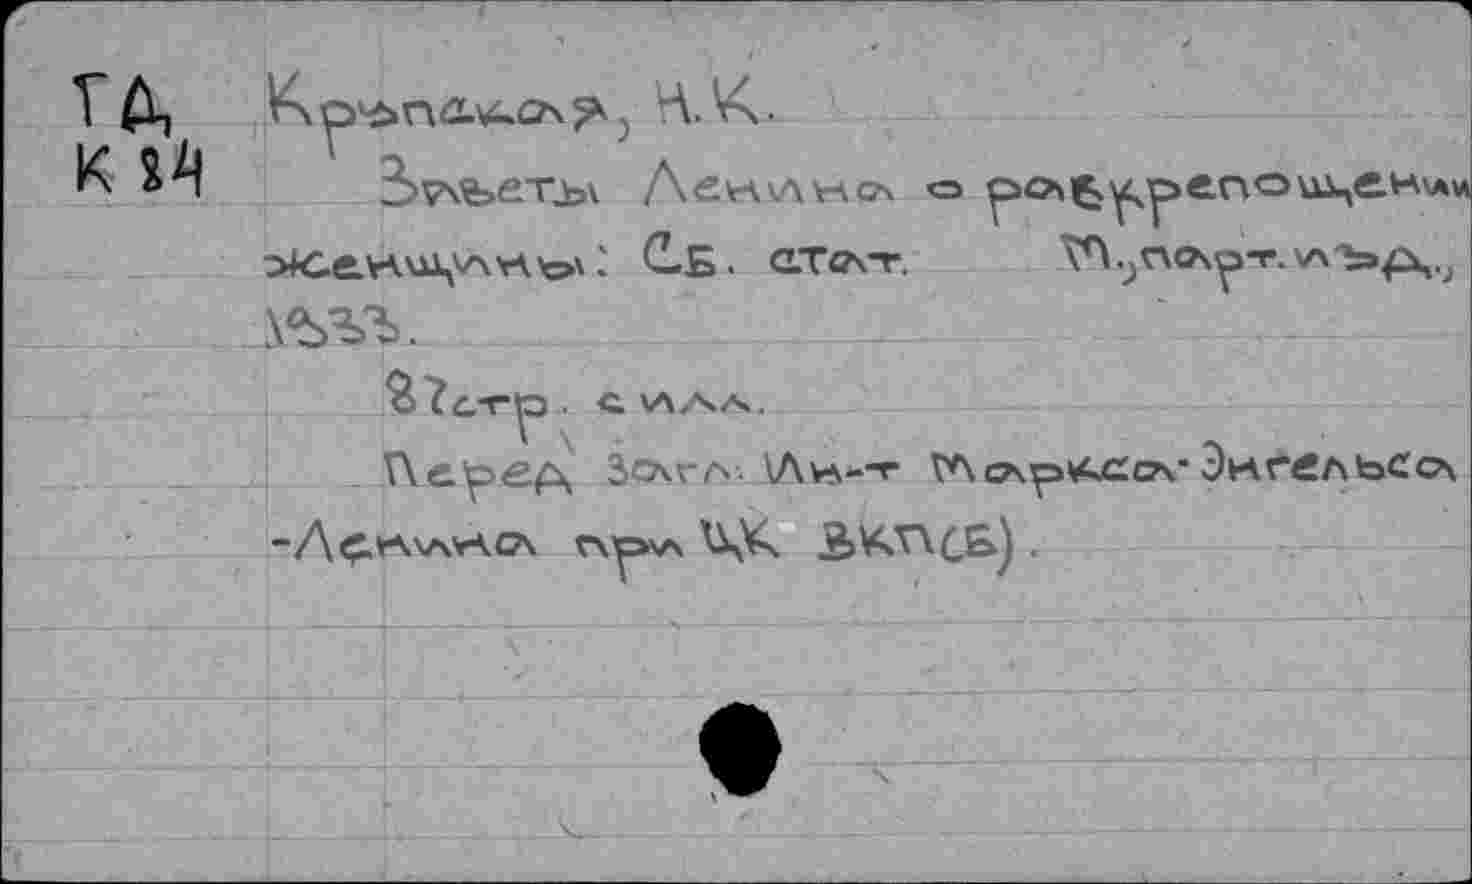 ТД Крупская, Н.К.
К 84 Заветы Ленина о раскрепощении
женщины: Сб. стат. М., парт. изд.,
1933.
87стр. с илл.
Перед загл. Ин-т Маркса-Энгельса
-Ленина при ЦК ВКП(Б).